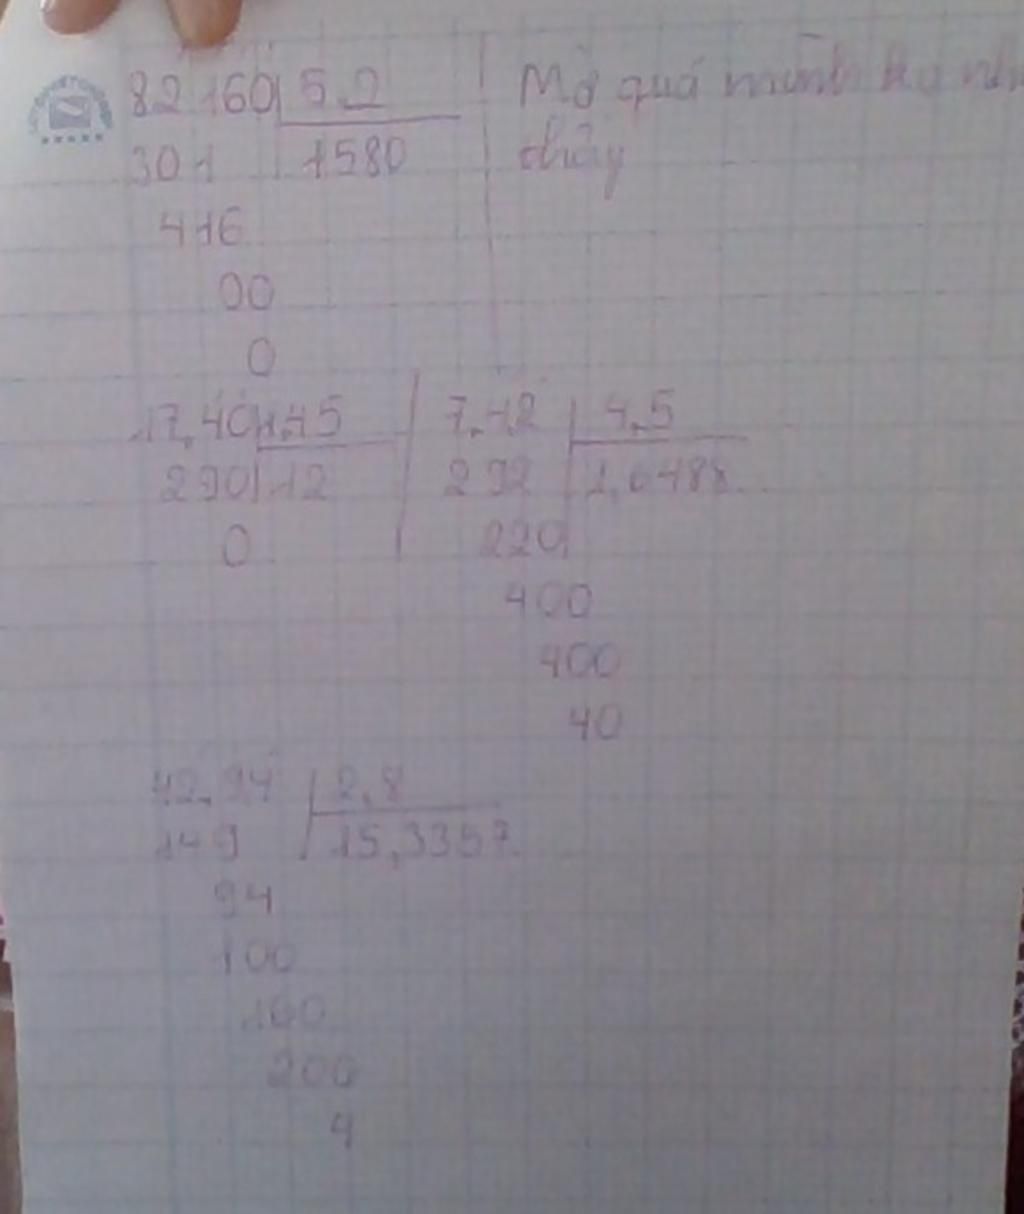 82160 5,2 Mờ quá mình
301 1580 thấy
416
00
0
17,40 1,45 7,42 4,5
290 12 292 1,6488
0 220
400
400
40
42,94 2,8
149 15,3357
94
100
160
200
4